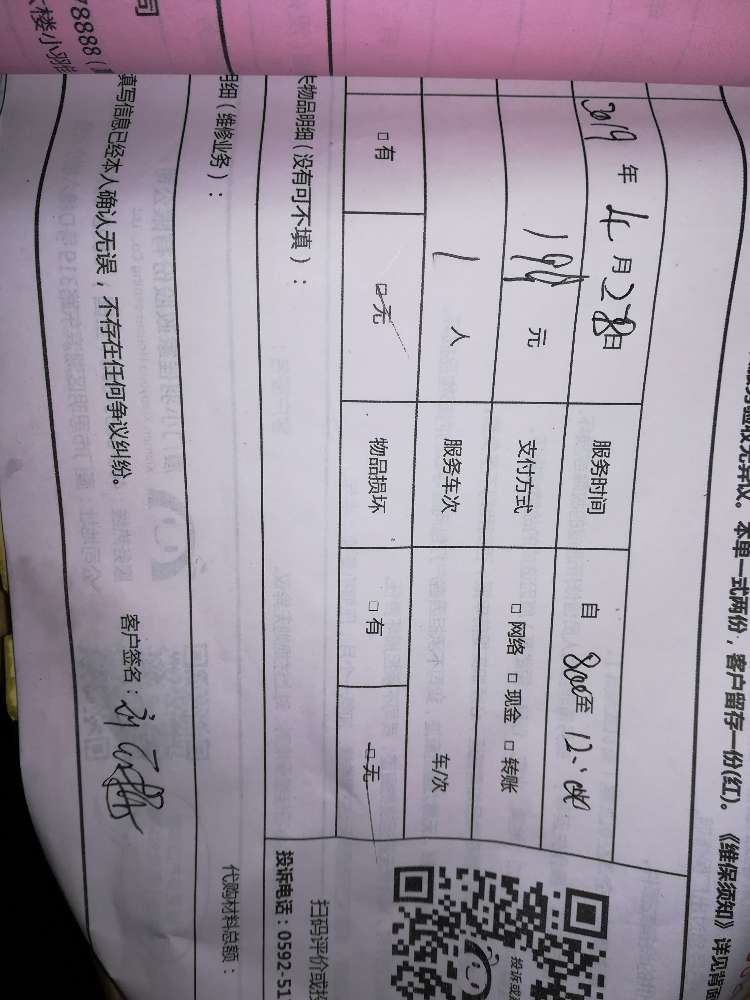 服务验收无异议。本单一式两份，客户留存一份(红)。《维保须知》详见背面
2019 年 4 月 28 日 服务时间 自 8:00 至 12:00
198 元 支付方式 □ 网络 □ 现金 □ 转账
1 人 服务车次 车/次
□ 有 □ 无 物品损坏 □ 有 □ 无
物品明细（没有可不填）：
扫码评价或投
投诉电话：0592-51
明细（维修业务）：
代购材料总额：
填写信息已经本人确认无误，不存在任何争议纠纷。 客户签名：
78888
楼小
司
投诉或